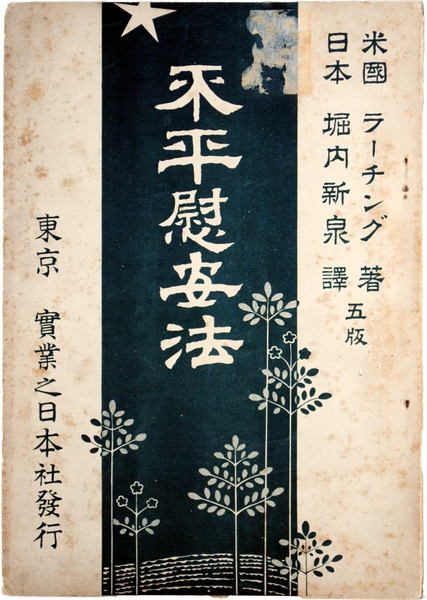 米國 ラーチング 著
日本 堀内新泉 譯
五版
不平慰安法
東京 實業之日本社發行